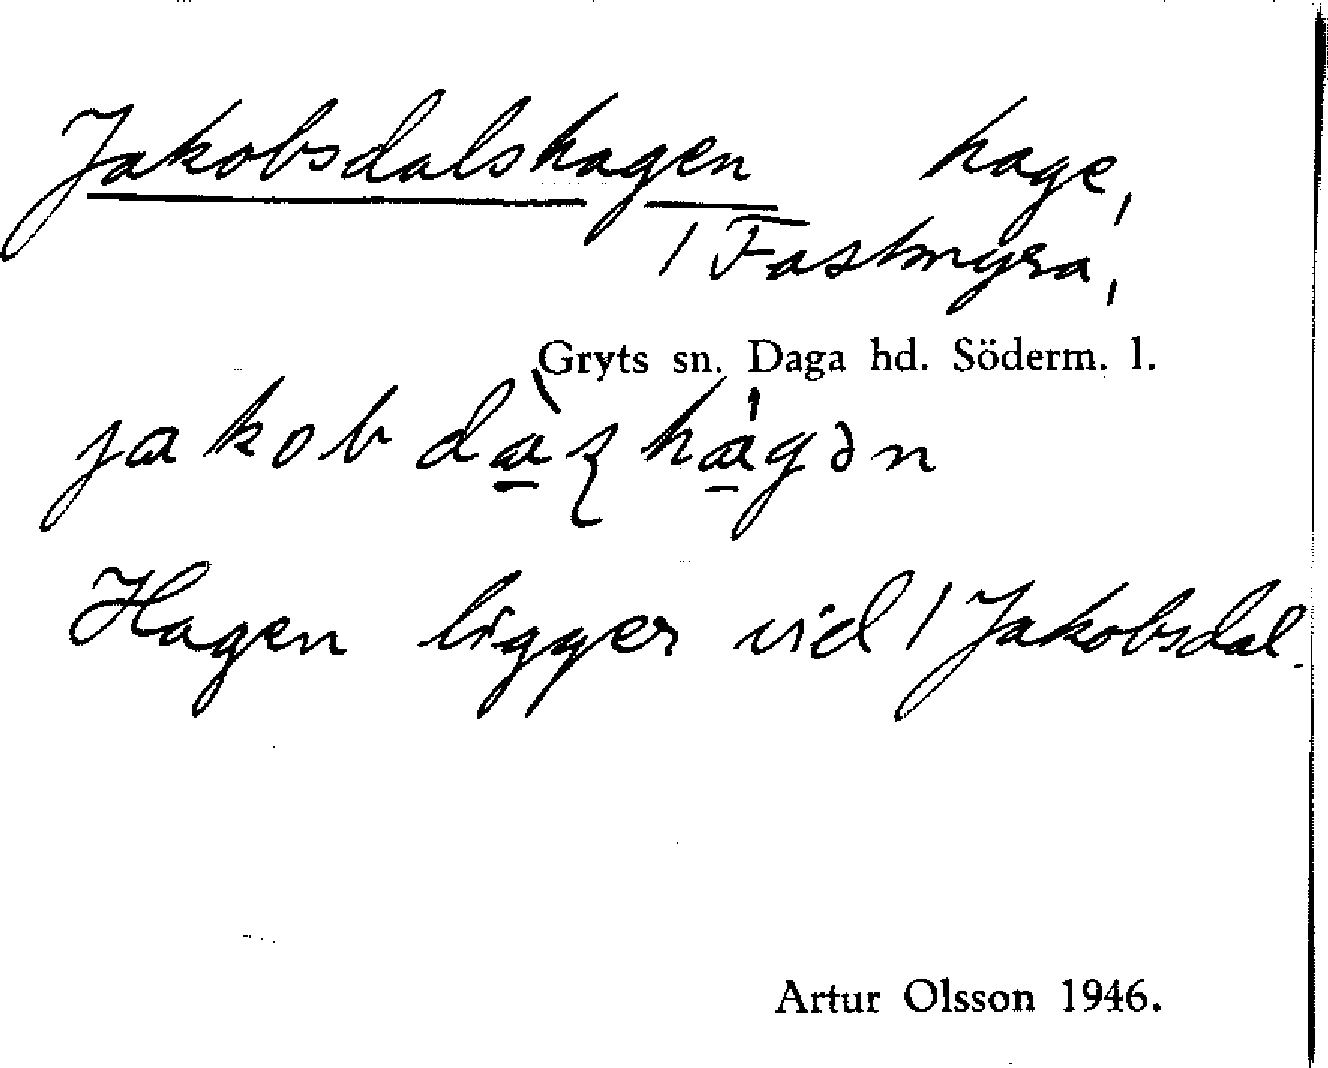 Jakobsdalshagen hage,
/ Fastmyra,
Gryts sn. Daga hd. Söderm. l.
Hagen ligger vid / Jakobsdal.
Artur Olsson 1946.